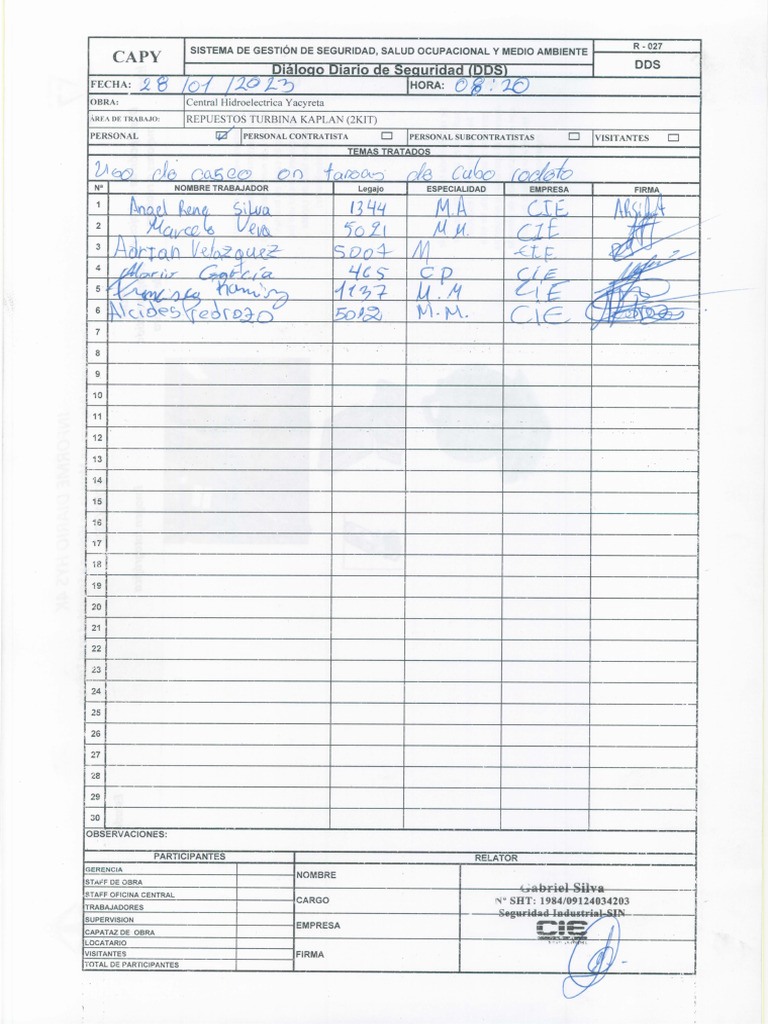 CAPY
SISTEMA DE GESTIÓN DE SEGURIDAD, SALUD OCUPACIONAL Y MEDIO AMBIENTE
R - 027
Diálogo Diario de Seguridad (DDS)
DDS
FECHA: 28 /01 /2023 HORA: 08:20
OBRA: Central Hidroelectrica Yacyreta
ÁREA DE TRABAJO: REPUESTOS TURBINA KAPLAN (2KIT)
PERSONAL PERSONAL CONTRATISTA PERSONAL SUBCONTRATISTAS VISITANTES
TEMAS TRATADOS
Uso de casco en tareas de cubo rodete
Nº NOMBRE TRABAJADOR Legajo ESPECIALIDAD EMPRESA FIRMA
1 Angel Rene Silva 1344 M.A CIE ARSilvA
2 Marcelo Vera 5021 M.M. CIE
3 Adrian Velazquez 5007 M CIE
4 Mario Garcia 465 CP CIE
5 Francisco Ramirez 1137 M.M CIE
6 Alcides Pedrozo 5012 M.M. CIE
7
8
9
10
11
12
13
14
15
16
17
18
19
20
21
22
23
24
25
26
27
28
29
30
OBSERVACIONES:
PARTICIPANTES RELATOR
GERENCIA
STAFF DE OBRA
STAFF OFICINA CENTRAL
TRABAJADORES
SUPERVISION
CAPATAZ DE OBRA
LOCATARIO
VISITANTES
TOTAL DE PARTICIPANTES
NOMBRE
CARGO
EMPRESA
FIRMA
Gabriel Silva
Nº SHT: 1984/09124034203
Seguridad Industrial-SIN
CIE